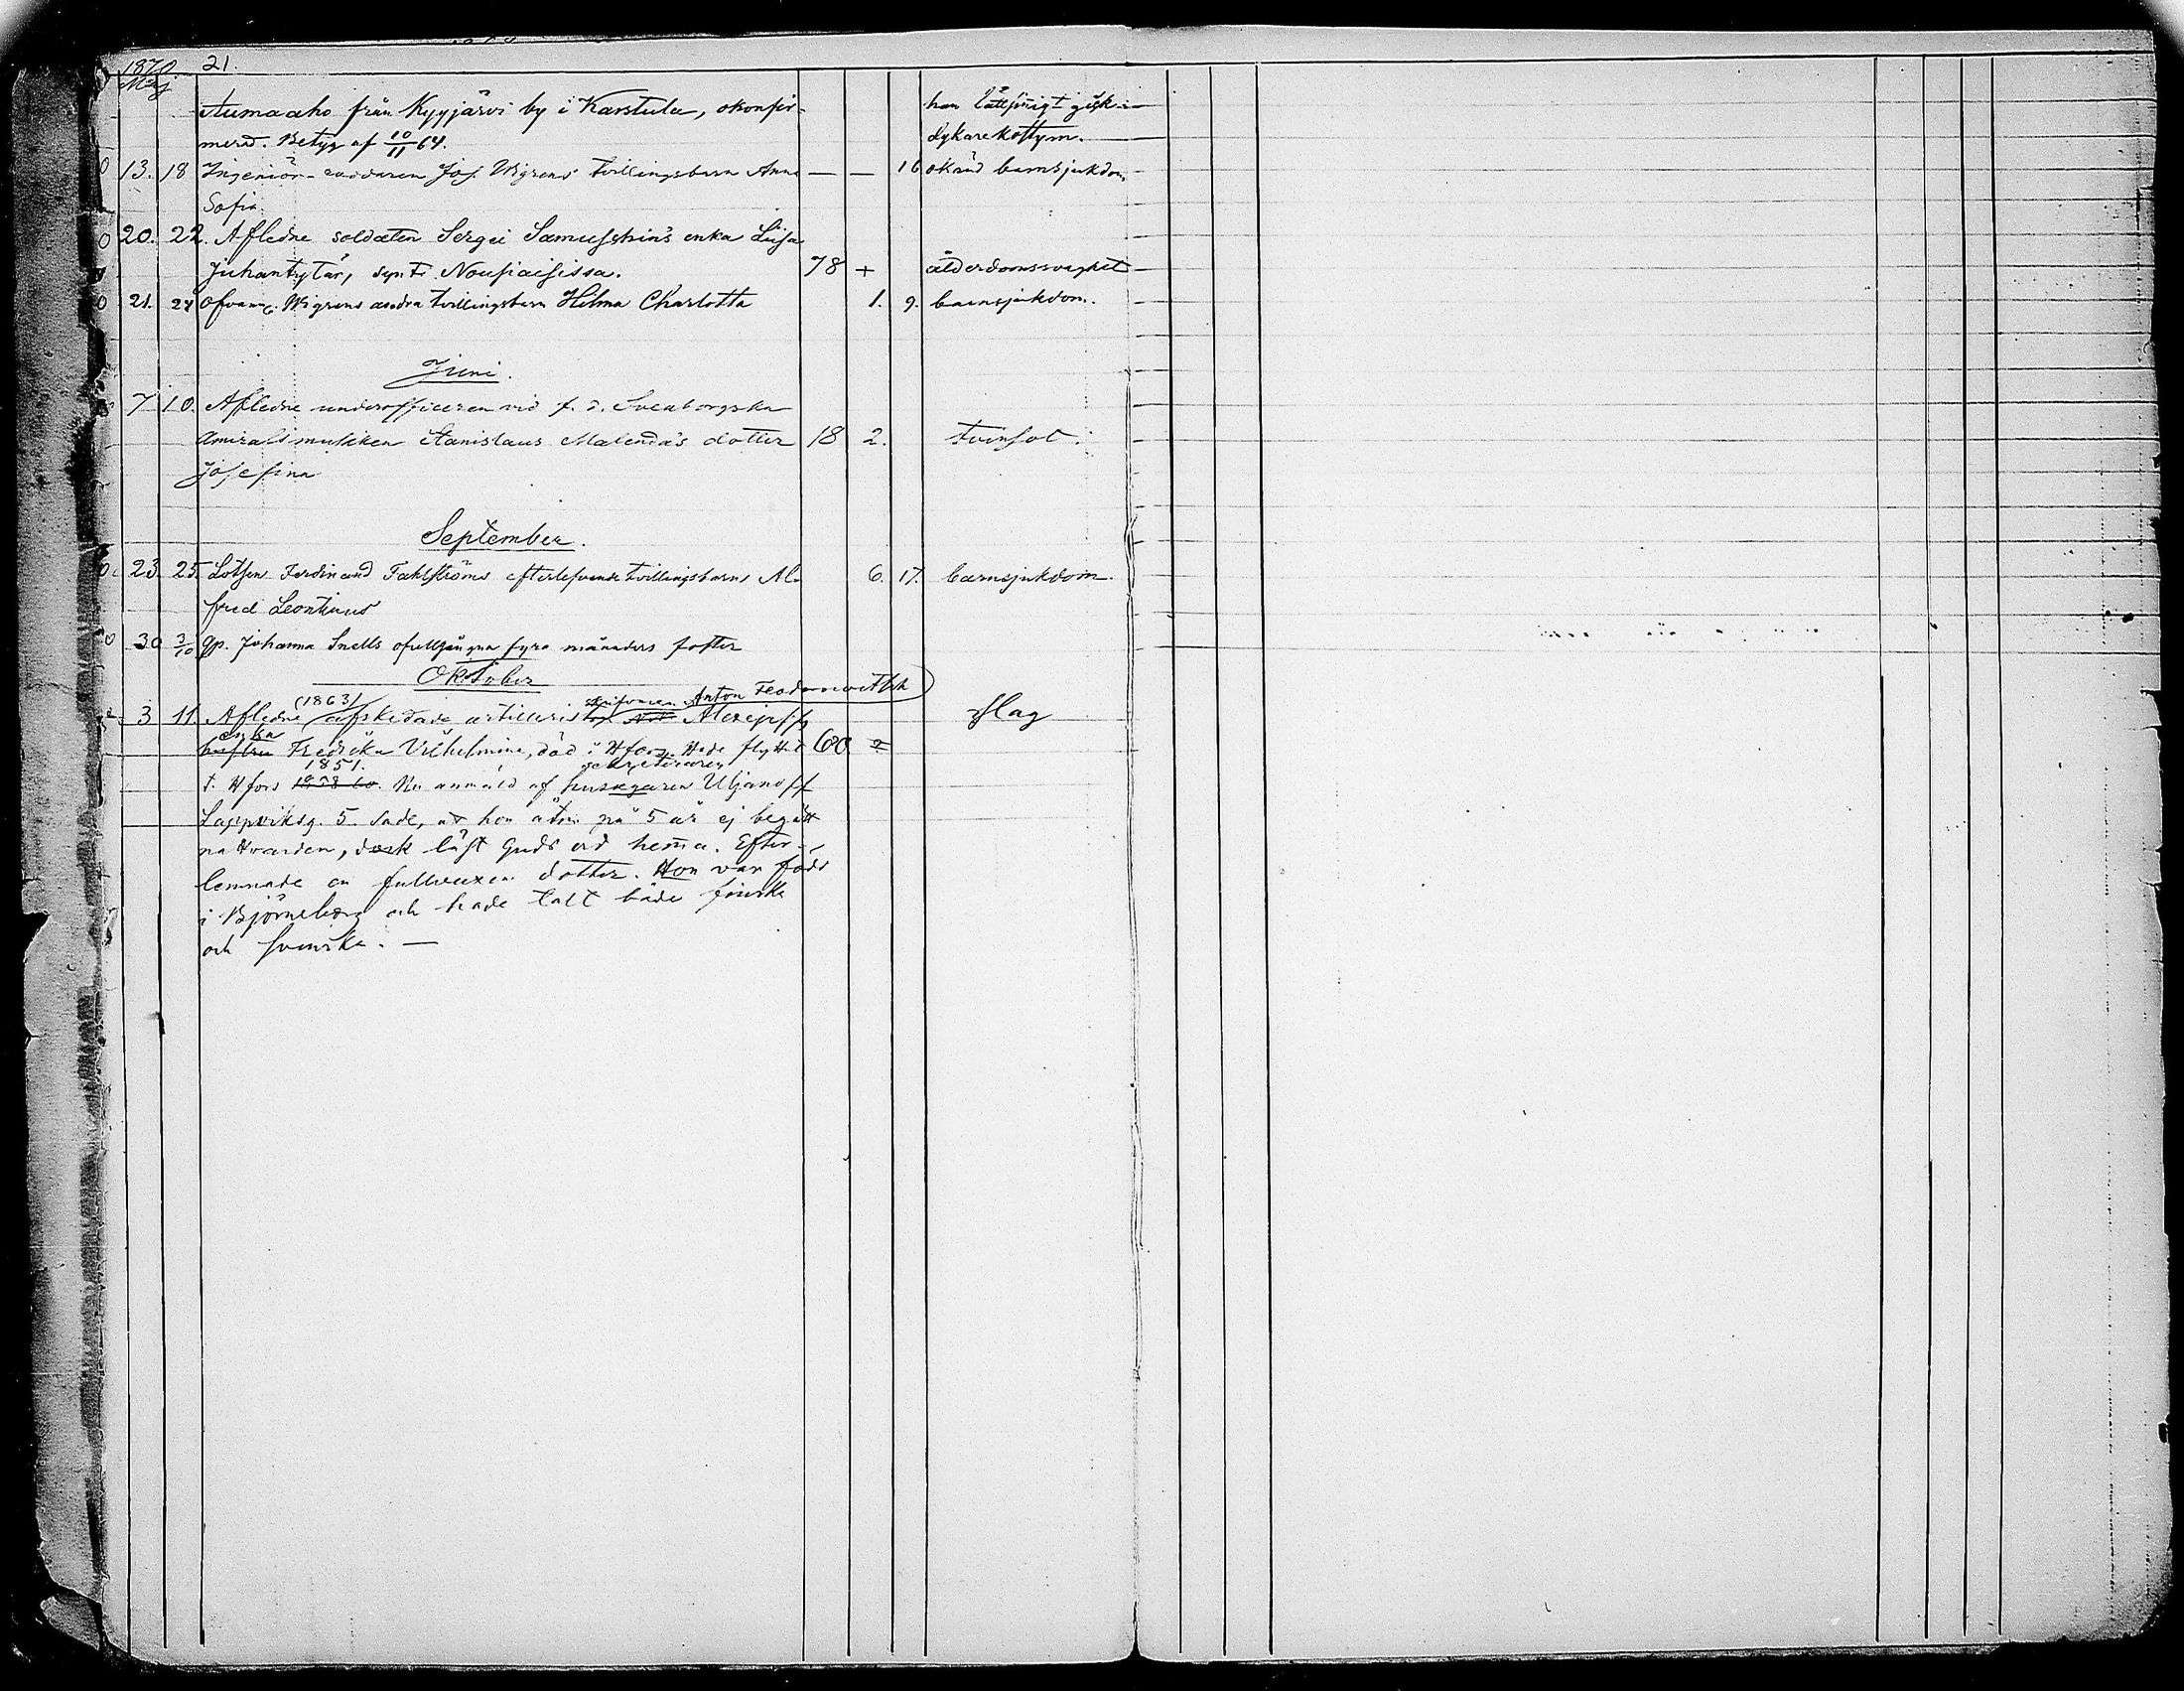 1870. 21.
Maj
Aumaaho från Kyyjärvi by i Karstula, okonfir- han lättsinnigt gick i
merd. Betyg af 10/11 64. dykarekostym.
13. 18 Ingeniör- Jos. Wigrens tvillingsbarn Anna — — 16 okänd barnsjukdom,
Sofia.
20. 22. Aflidne soldaten Sergei enka Liisa
Juhantytär, synt. Nousiaisissa. 78 + ålderdomssvaghet
21. 24 Ofvann. Wigrens andra tvillingsbarn Hilma Charlotta 1. 9. barnsjukdom.
Juni.
7 10. Aflidne underofficeren vid f. d. Sveaborgska
Amirals musiken Stanislaus Malenda's dotter 18 2. tvinsot.
Josefina
September.
23. 25. Lotsen Ferdinand Fahlströms efterlefvande tvillingsbarns Al- 6. 17. barnsjukdom.
fred Leontinus
30 3/10 Qp. Johanna Snells ofullgångna fyra månaders foster
Oktober
(1863) Anton Feodorowitsch
3 11. Aflidne afskedade artilleristen Alexejeffs slag
enka
hustru Fredrika Vilhelmina, död i Hfors. Hade flyttat 60
1851.
t. Hfors Nu anmäld af husegaren Uljanoff
Lappviksg. 5. Sade, at hon åtm. på 5 år ej begått
nattvarden, dock läst Guds ord hemma. Efter-
lemnade en fullvuxen dotter. Hon var född
i Björneborg och hade talt både finska
och svenska. —